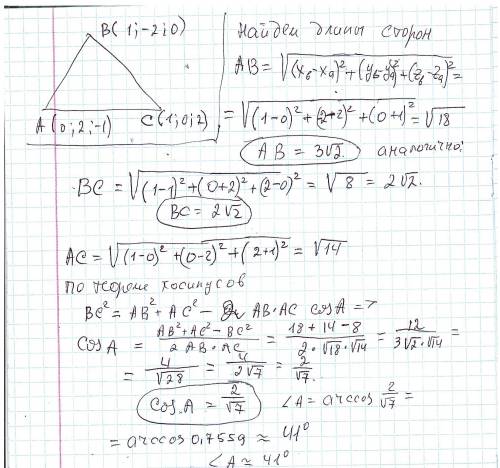 B(1;-2;0)
A(0;2;-1)
C(1;0;2)
найдем длины сторон
AB = √((x_б-x_a)²+(y_б-y_a)²+(z_б-z_a)²) =
= √((1-0)²+(2+2)²+(0+1)²) = √18
AB = 3√2. аналогично:
BC = √((1-1)²+(0+2)²+(2-0)²) = √8 = 2√2.
BC = 2√2
AC = √((1-0)²+(0-2)²+(2+1)²) = √14
по теореме косинусов
BC² = AB² + AC² - 2 AB·AC cosA =>
cosA = (AB²+AC²-BC²)/(2AB·AC) = (18+14-8)/(2·√18·√14) = 12/(3√2·√14) =
= 4/√28 = 4/(2√7) = 2/√7.
cosA = 2/√7 ∠A = arccos 2/√7 =
= arccos 0,7559 ≈ 41°
∠A ≈ 41°